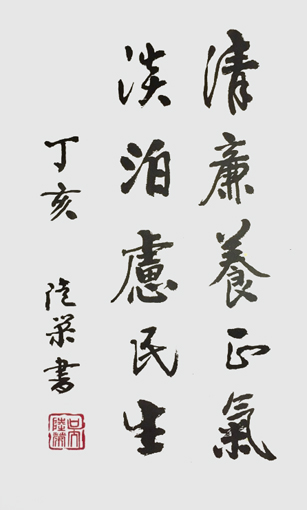 清廉養正氣
淡泊慮民生
丁亥 陸 書